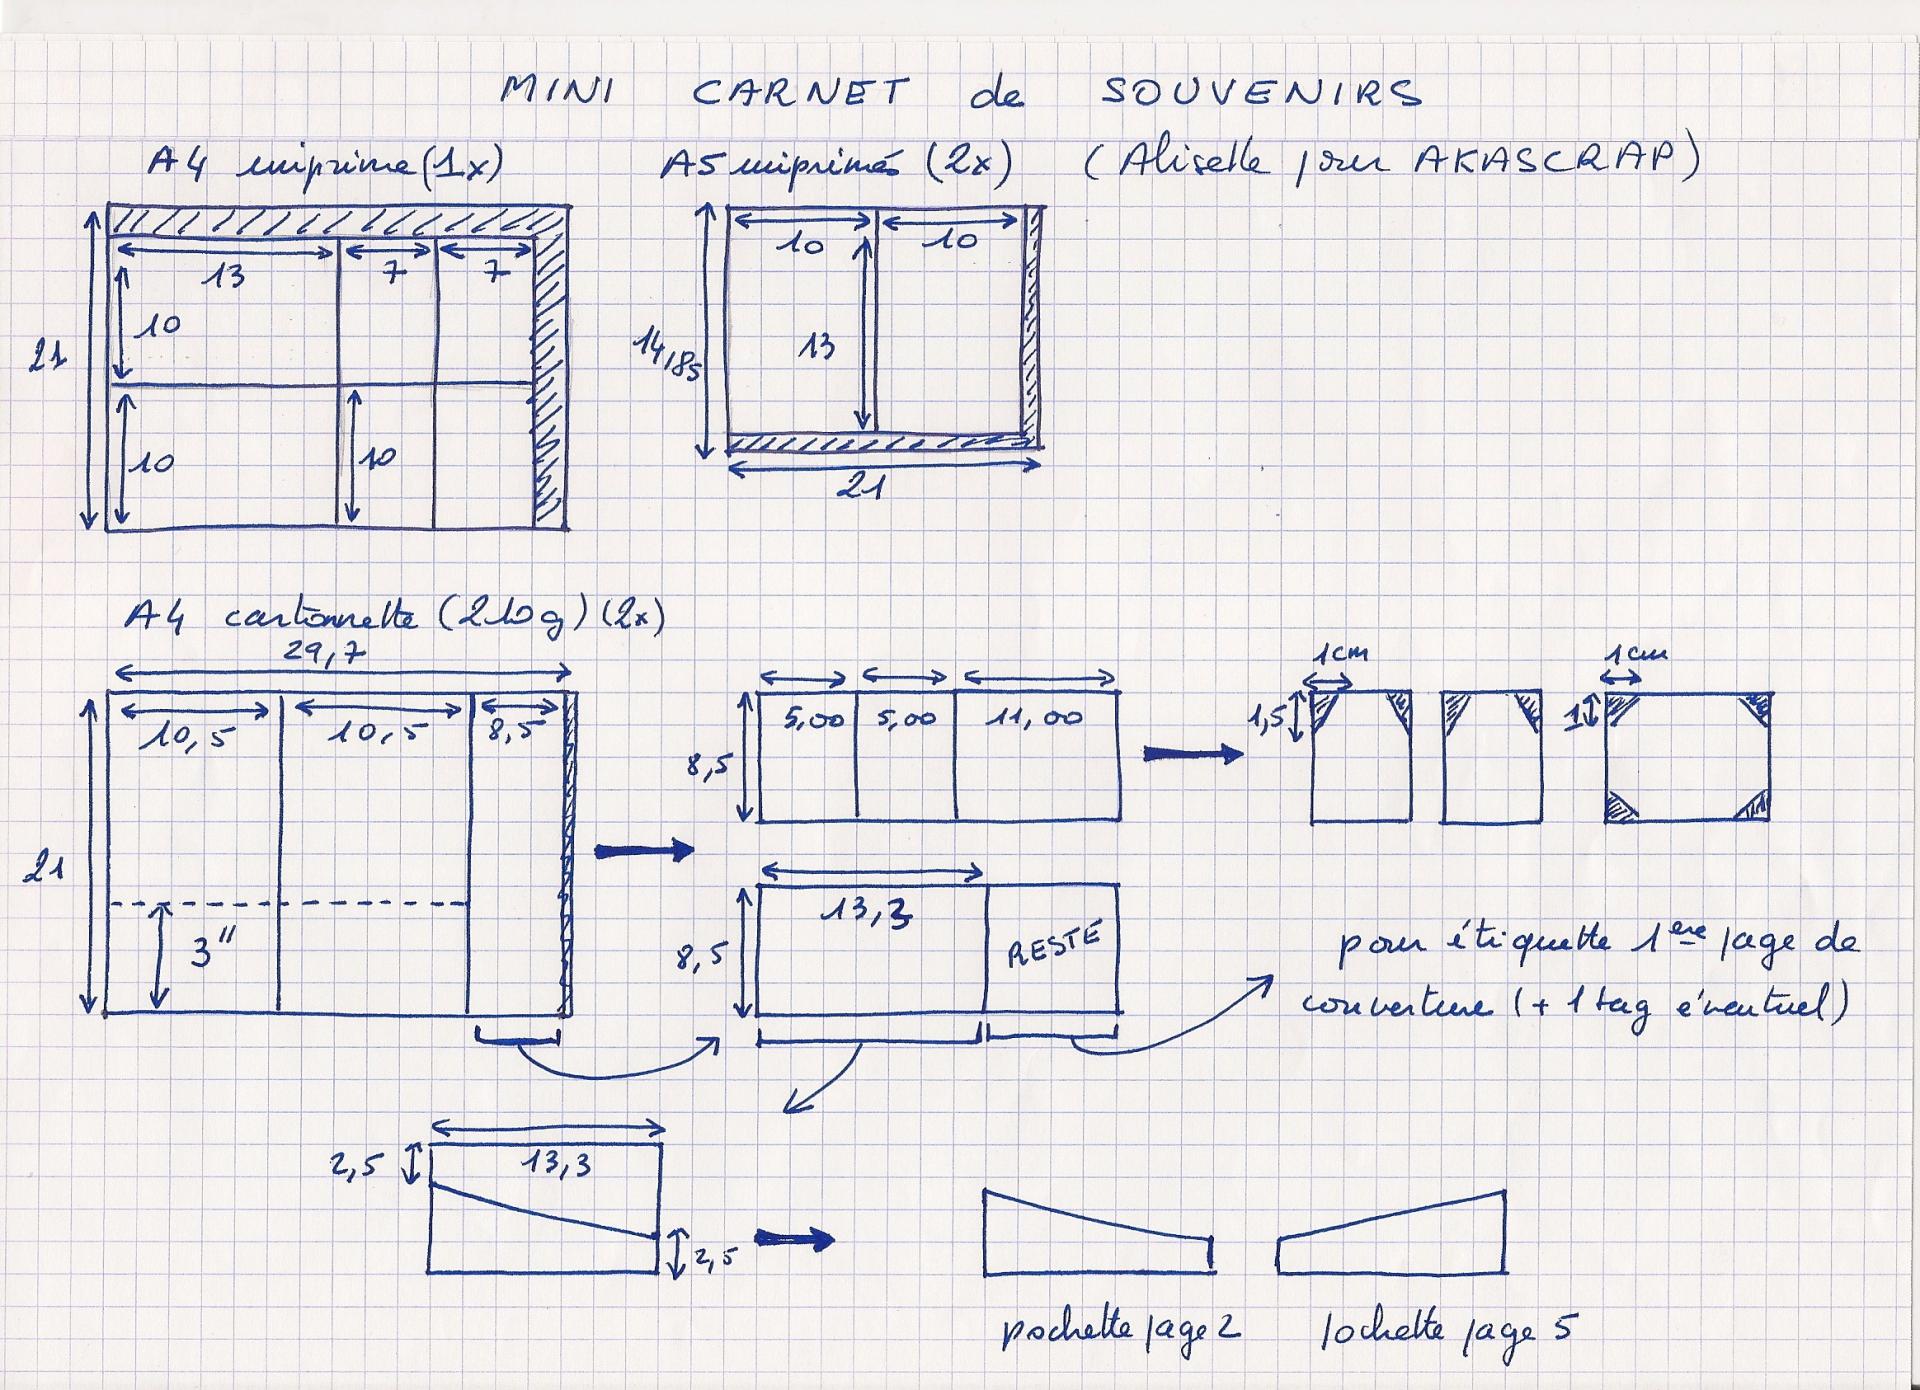 MINI CARNET de SOUVENIRS
A4 imprimé (1x)
A5 imprimés (2x)
(Aliselle pour AKASCRAP)
21
13
7
7
10
10
10
14,85
10
10
13
21
A4 cartonnette (210g) (2x)
29,7
21
10,5
10,5
8,5
3"
8,5
5,00
5,00
11,00
1cm
1,5
1cm
1
8,5
13,3
RESTE
pour étiquette 1ere page de
couverture (+ 1 tag éventuel)
2,5
13,3
2,5
pochette page 2
pochette page 5